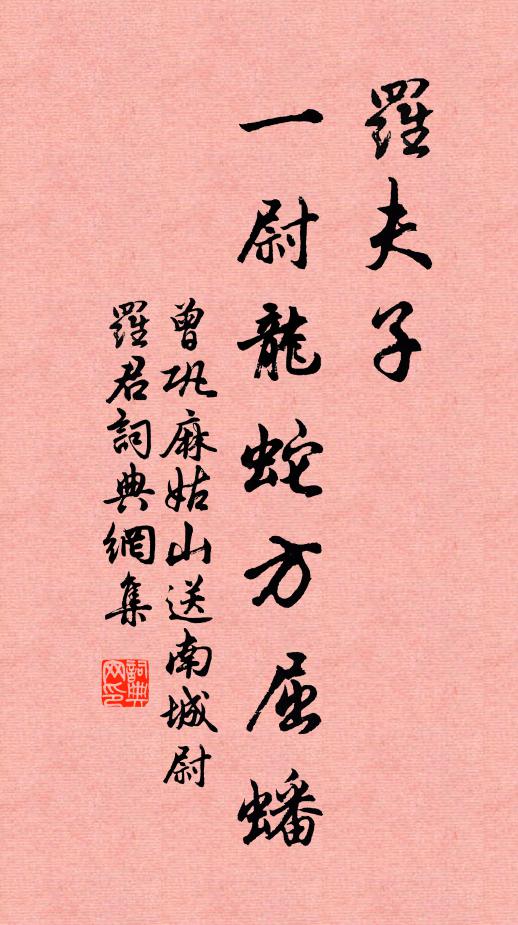 羅夫子
一尉龍蛇方屈蟠
曾巩麻姑山送南城尉
羅君詞典網集
詞典
网印